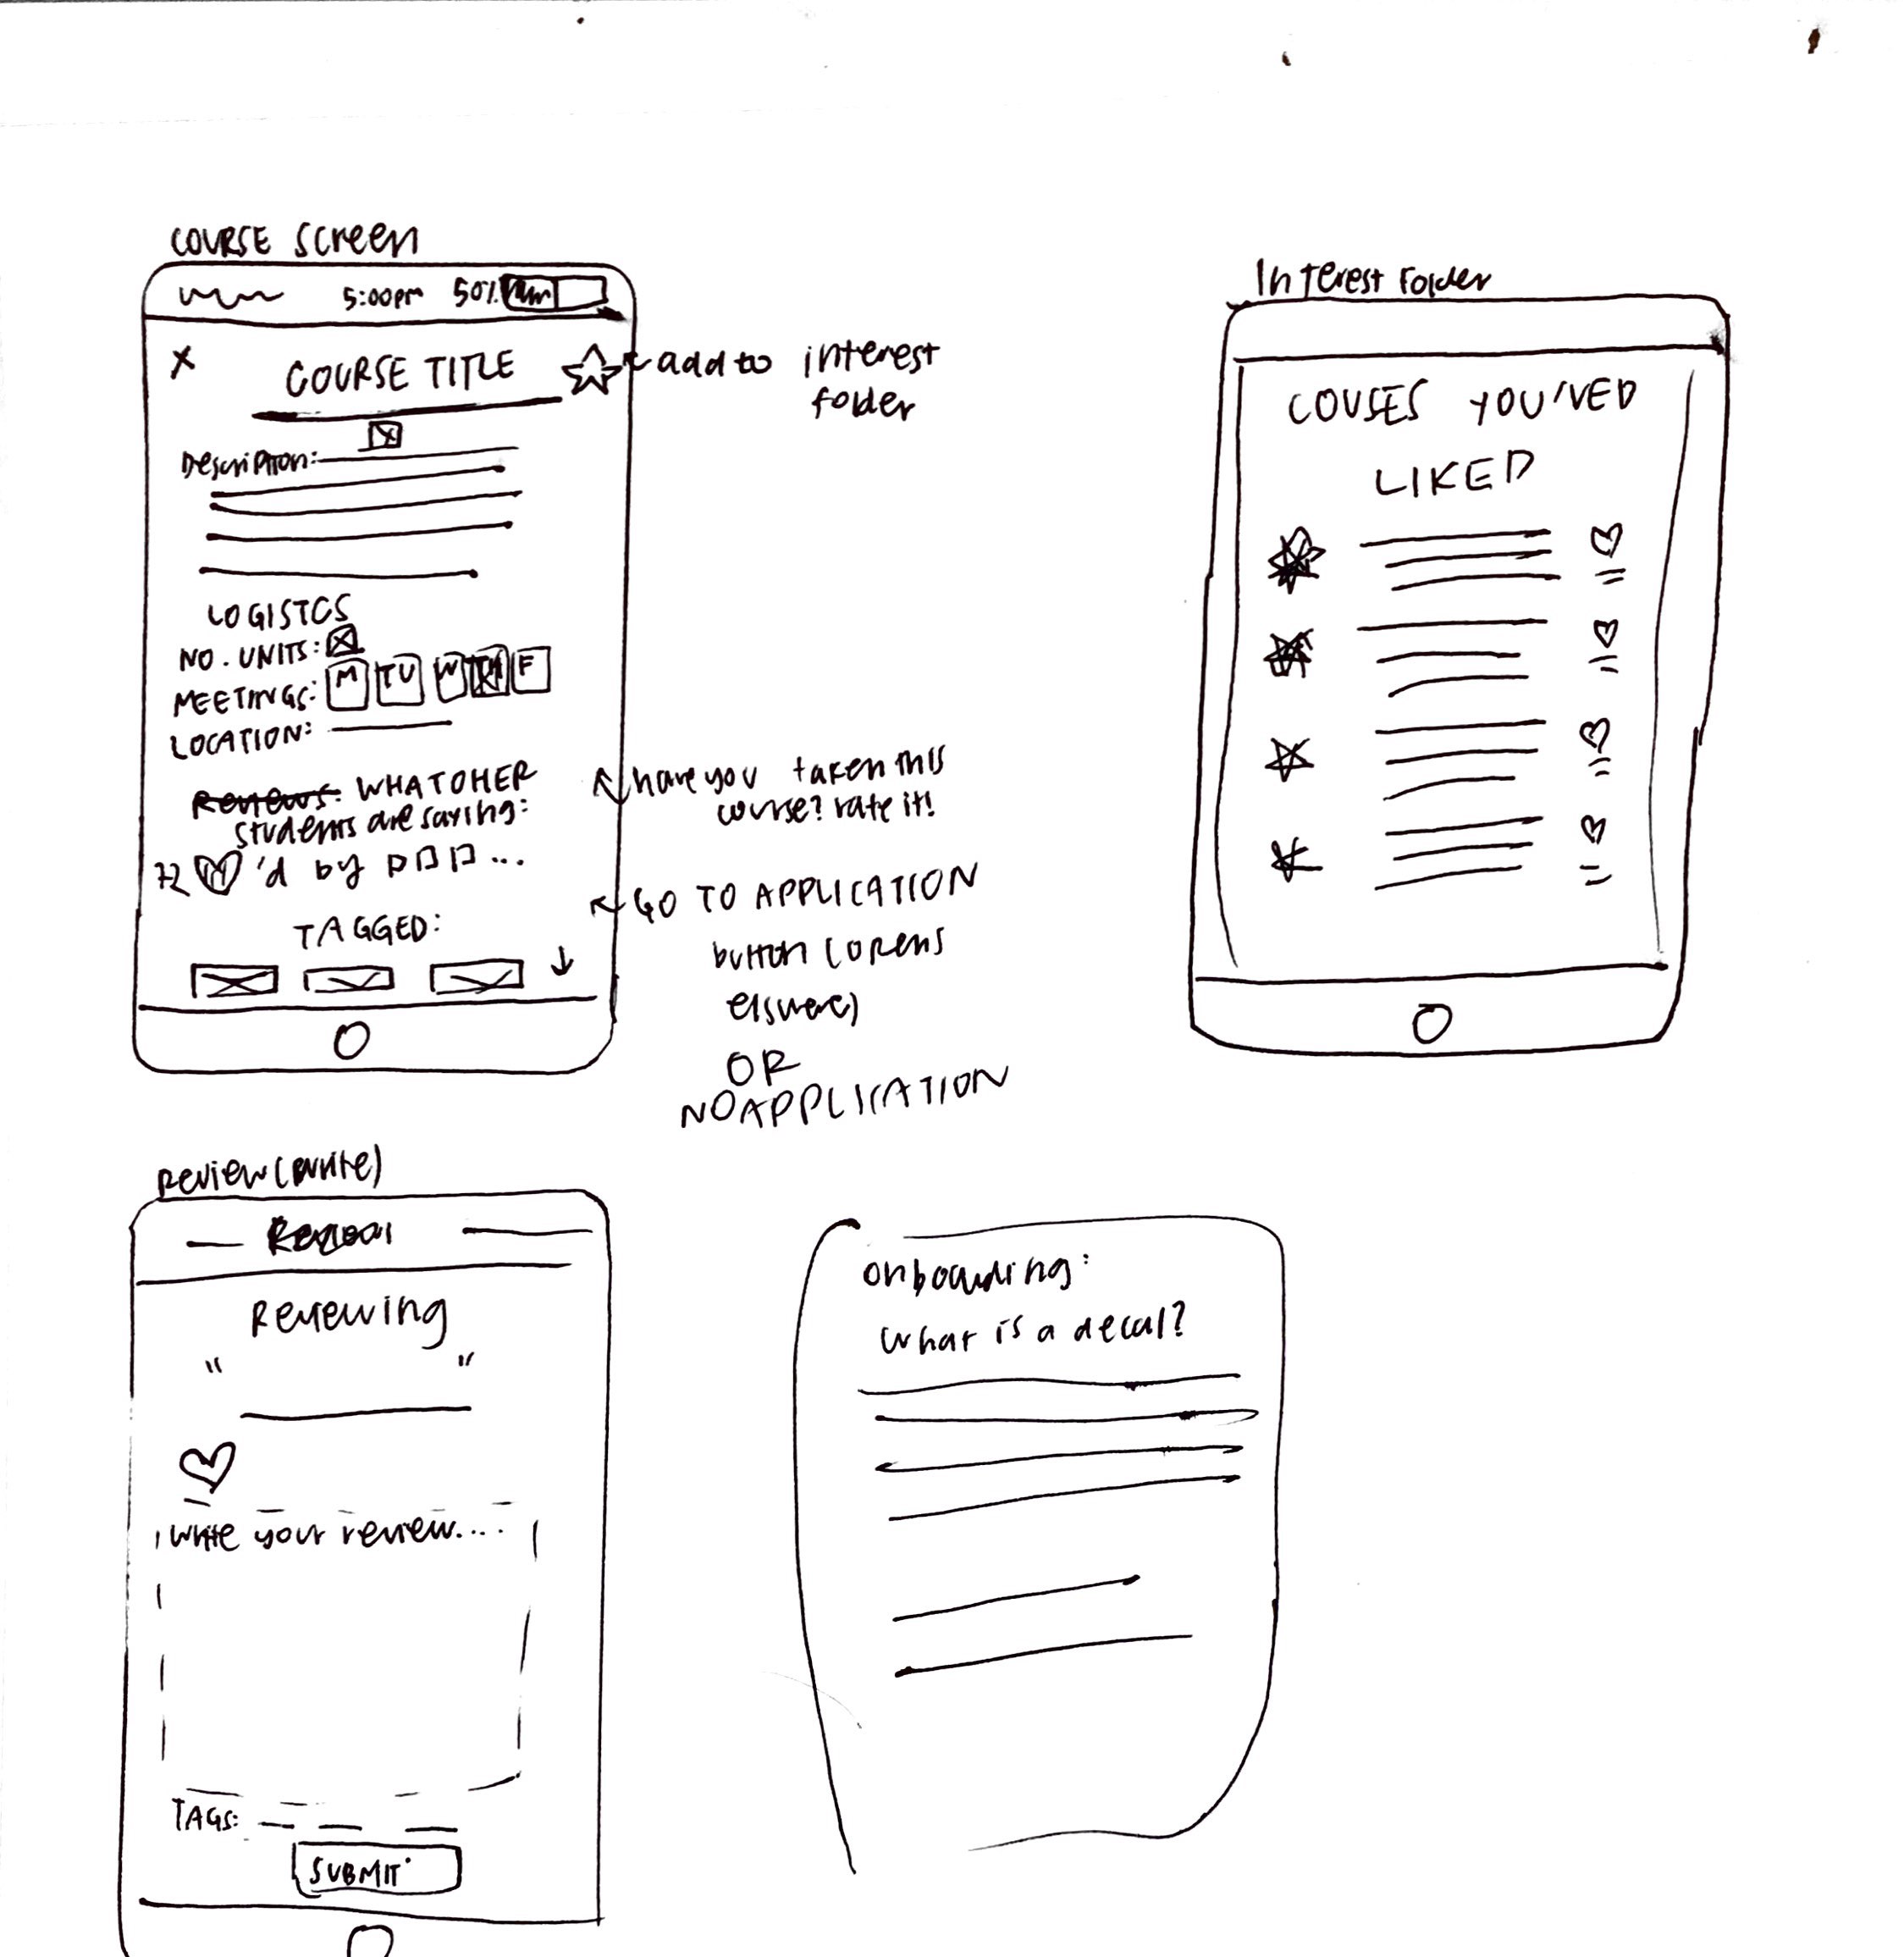 COURSE Screen
5:00pm 50%
X COURSE TITLE
add to interest
folder
Description:
LOGISTCS
NO. UNITS:
MEETINGS: M TU W TH F
LOCATION:
Reviews: WHAT OHER
students are saying:
72 'd by ...
TAGGED:
have you taken this
course? rate it!
GO TO APPLICATION
button (opens
elswere)
OR
NO APPLICATION
Interest Folder
COUSES YOU'VED
LIKED
Review (write)
Reviewing
" "
write your review....
TAGS:
SUBMIT
Onboarding:
What is a decal?